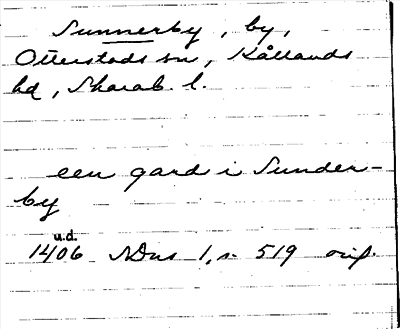 Sunnerby, by,
Otterstads sn, Kållands
hd, Skarab. l.
een gard i Sunder-
by
u.d.
1406 NDns 1, s. 519 orig.